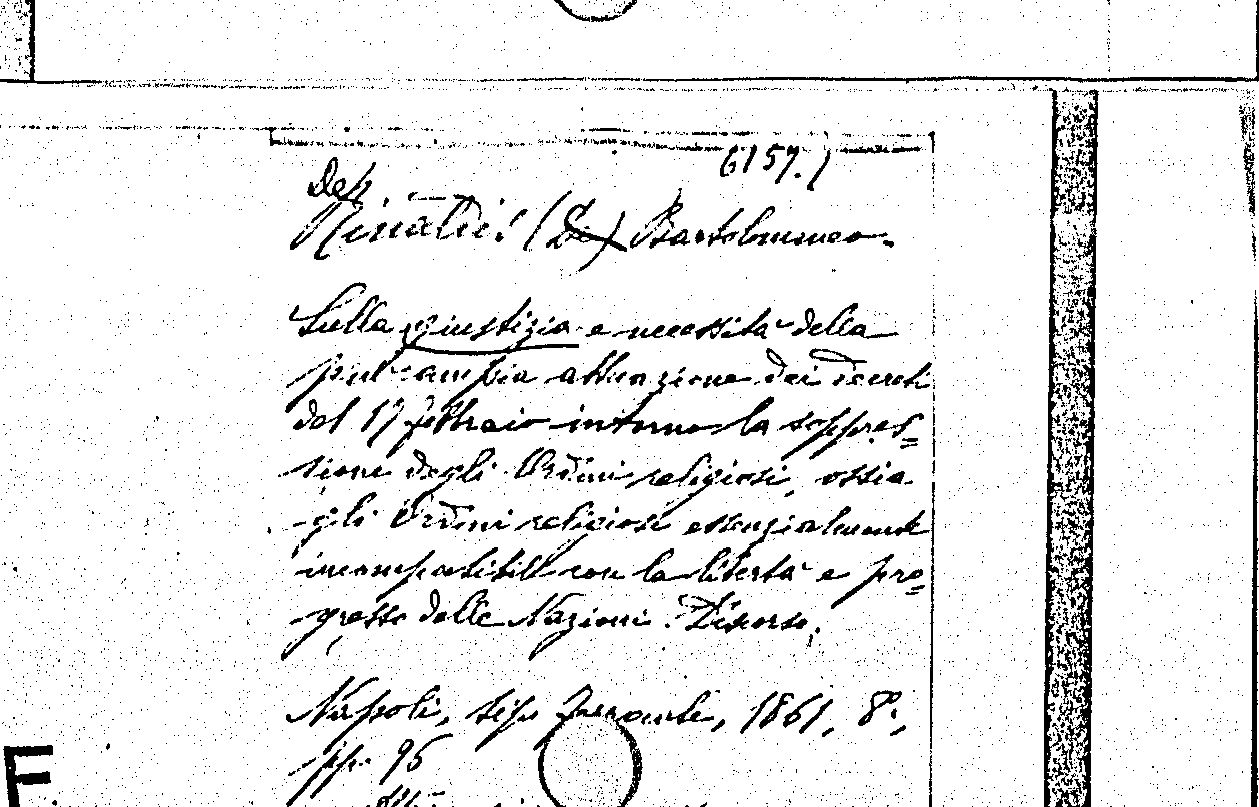 6157.
Del
Rinaldis (De) Bartolommeo.
Sulla giustizia e necessità della
più ampia attuazione dei decreti
del 17 febbraio intorno la soppres=
sione degli Ordini religiosi, ossia
gli Ordini religiosi essenzialmente
incompatibili con la libertà e pro=
gresso delle Nazioni. Discorso.
Napoli, tip. 1861, 8°,
pp. 96
F